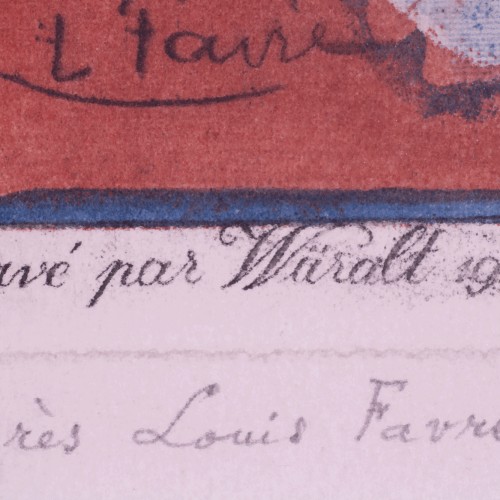 L Favre
avé par Wäralt 19
rès Louis Favre